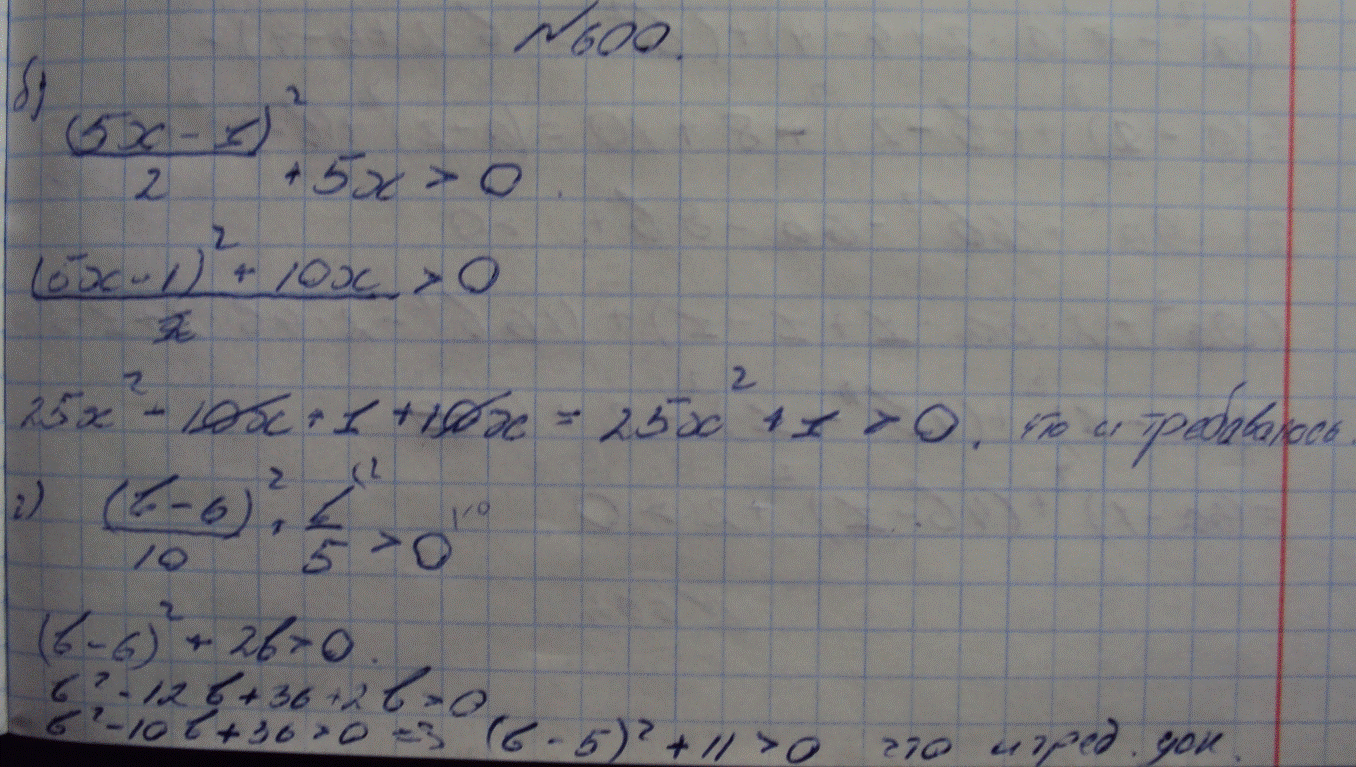 №600.
б) (5x - 1)² / 2 + 5x > 0.
(5x - 1)² + 10x / 2 > 0
25x² - 10x + 1 + 10x = 25x² + 1 > 0, что и требавалось.
г) (b - 6)² / 10 + b / 5 > 0
(b - 6)² + 2b > 0.
b² - 12b + 36 + 2b > 0
b² - 10b + 36 > 0 => (b - 5)² + 11 > 0 что и тред. док.